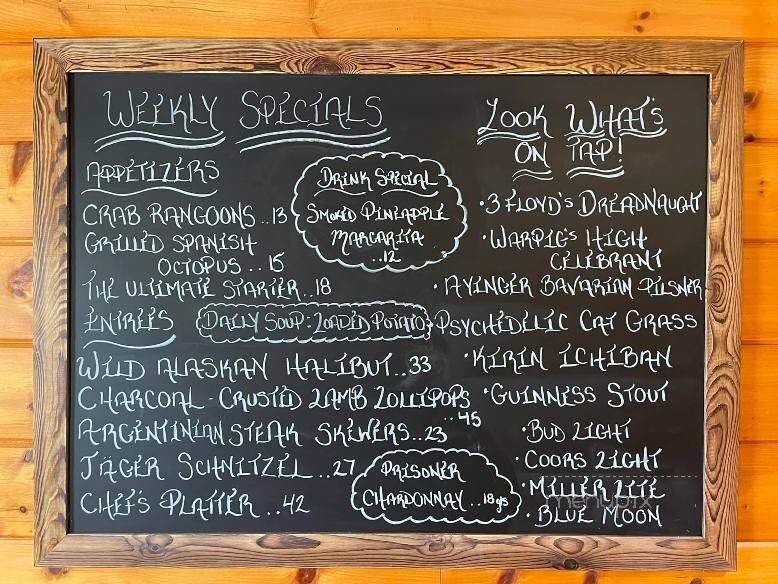 WEEKLY SPECIALS
APPETIZERS
CRAB RANGOONS ..13
GRILLED SPANISH
OCTOPUS ..15
THE ULTIMATE STARTER..18
DRINK SPECIAL
SMOKED PINEAPPLE
MARGARITA
..12
ENTRÉES
DAILY SOUP: LOADED POTATO
WILD ALASKAN HALIBUT..33
CHARCOAL-CRUSTED LAMB LOLLIPOPS
..45
ARGENTINIAN STEAK SKEWERS..23
JÄGER SCHNITZEL ..27
CHEF'S PLATTER ..42
PRISONER
CHARDONNAY ..18gls
LOOK WHAT'S
ON TAP!
•3 FLOYD'S DREADNAUGHT
•WARPIGS HIGH
CELEBRANT
•AYINGER BAVARIAN PILSNER
PSYCHEDELIC CAT GRASS
•KIRIN ICHIBAN
•GUINNESS STOUT
•BUD LIGHT
•COORS LIGHT
•MILLER LITE
•BLUE MOON
menupix